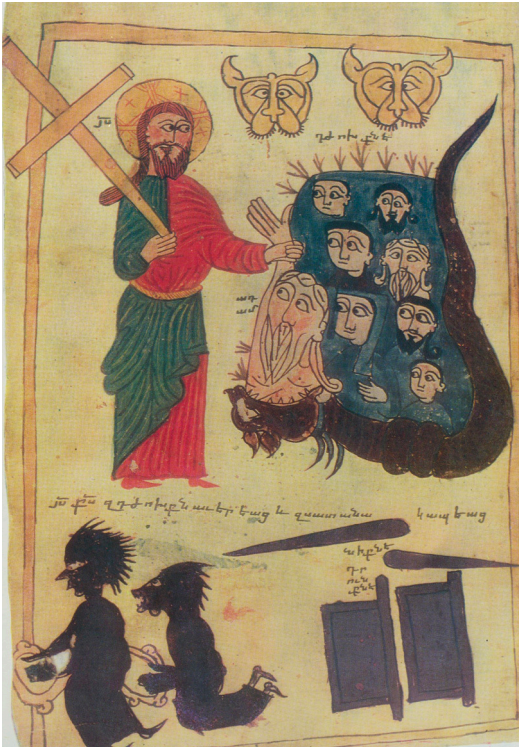 յս
դժոխքնե
ադ
ամ
յս քս զդժոխքն աւերեաց և զսատանա կապեաց
դր
ուն
քնե